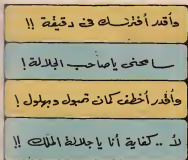 وأقدر أفترسك فى دقيقة !!
سامحنى ياصاحب الجلالة !
وأقدر أخطف كمان تمبول وبهلول !
لأ .. كفاية أنا ياجلالة الملك !!